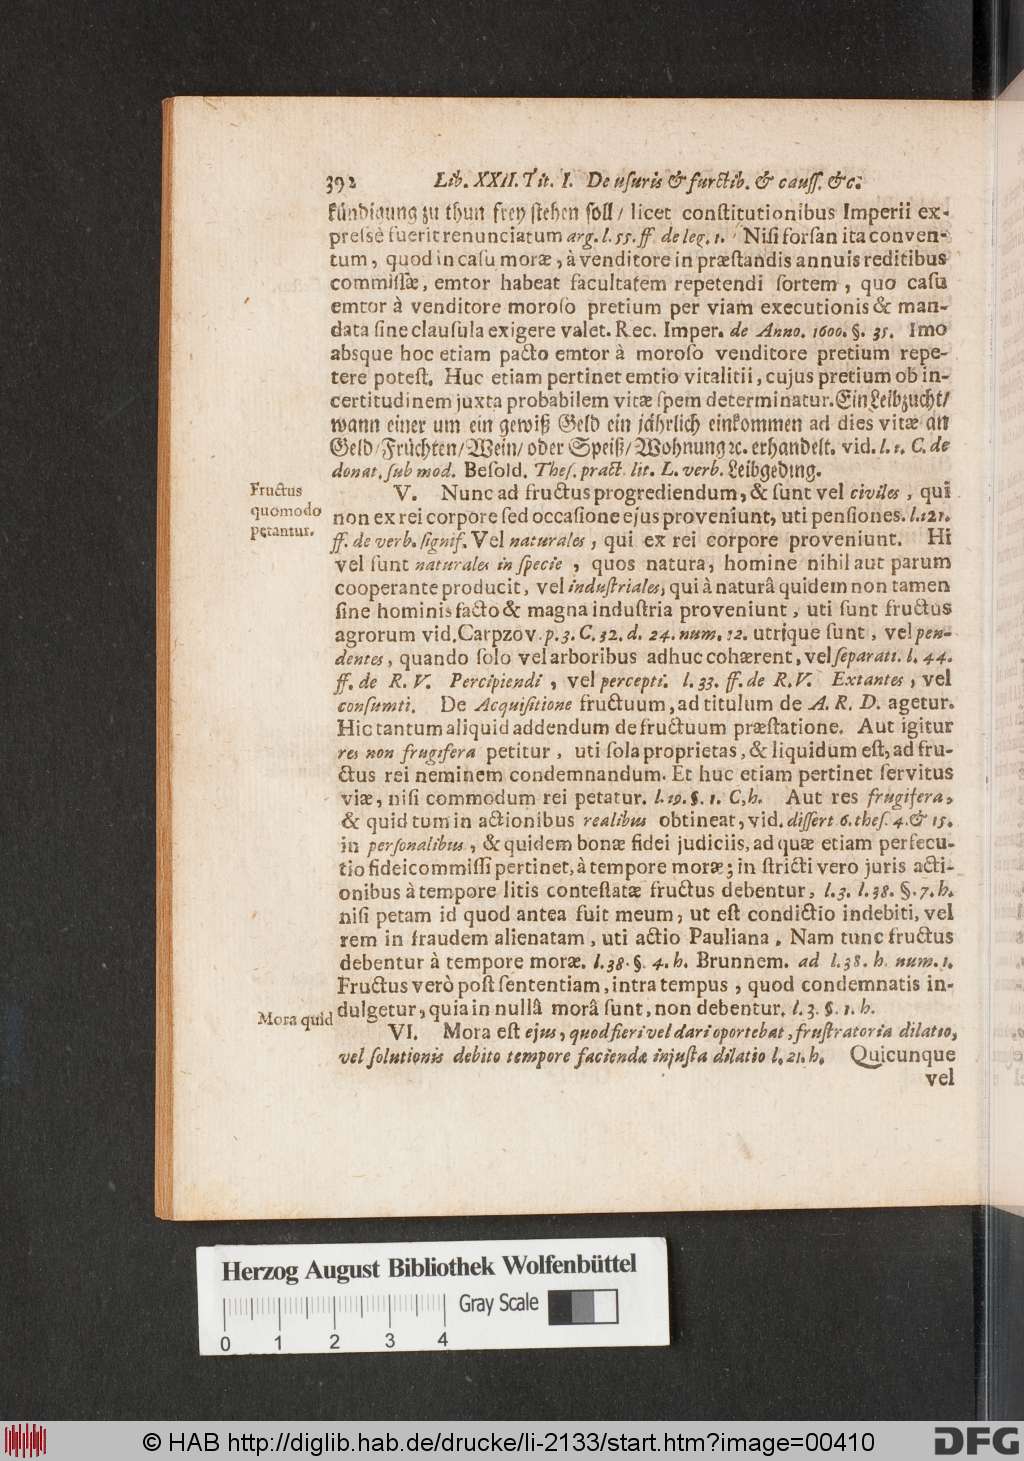 392 Lib. XXII. Tit. I. De uſuris & furctib. & cauſſ. &c.
kündigung zu thun frey ſtehen ſoll / licet conſtitutionibus Imperii ex-
preſsè fuerit renunciatum arg. l. 55. ff. de leg. 1. Niſi forſan ita conven-
tum, quod in caſu moræ, à venditore in præſtandis annuis reditibus
commiſſæ, emtor habeat facultatem repetendi ſortem, quo caſu
emtor à venditore moroſo pretium per viam executionis & man-
data ſine clauſula exigere valet. Rec. Imper. de Anno. 1600. §. 35. Imo
absque hoc etiam pacto emtor à moroſo venditore pretium repe-
tere poteſt. Huc etiam pertinet emtio vitalitii, cujus pretium ob in-
certitudinem juxta probabilem vitæ ſpem determinatur. Ein Leibzucht/
wann einer um ein gewiß Geld ein jährlich einkommen ad dies vitæ an
Geld/Früchten/Wein/oder Speiß/Wohnung ꝛc. erhandelt. vid. l. 1. C. de
donat. ſub mod. Beſold. Theſ. pract. lit. L. verb. Leibgeding.
Fructus
quomodo
petantur.
V. Nunc ad fructus progrediendum, & ſunt vel civiles, qui
non ex rei corpore ſed occaſione ejus proveniunt, uti penſiones. l. 121.
ff. de verb. ſignif. Vel naturales, qui ex rei corpore proveniunt. Hi
vel ſunt naturales in ſpecie, quos natura, homine nihil aut parum
cooperante producit, vel induſtriales, qui à naturâ quidem non tamen
ſine hominis facto & magna induſtria proveniunt, uti ſunt fructus
agrorum vid. Carpzov. p. 3. C. 32. d. 24. num. 12. utrique ſunt, vel pen-
dentes, quando ſolo vel arboribus adhuc cohærent, vel ſeparati. l. 44.
ff. de R. V. Percipiendi, vel percepti. l. 33. ff. de R. V. Extantes, vel
conſumti. De Acquiſitione fructuum, ad titulum de A. R. D. agetur.
Hic tantum aliquid addendum de fructuum præſtatione. Aut igitur
res non frugifera petitur, uti ſola proprietas, & liquidum eſt, ad fru-
ctus rei neminem condemnandum. Et huc etiam pertinet ſervitus
viæ, niſi commodum rei petatur. l. 19. §. 1. C, h. Aut res frugifera,
& quid tum in actionibus realibus obtineat, vid. diſſert 6. theſ. 4. & 15.
in perſonalibus, & quidem bonæ fidei judiciis, ad quæ etiam perſecu-
tio fideicommiſſi pertinet, à tempore moræ; in ſtricti vero juris acti-
onibus à tempore litis conteſtatæ fructus debentur, l. 3. l. 38. §. 7. h.
niſi petam id quod antea fuit meum, ut eſt condictio indebiti, vel
rem in fraudem alienatam, uti actio Pauliana. Nam tunc fructus
debentur à tempore moræ. l. 38. §. 4. h. Brunnem. ad l. 38. h. num. 1.
Fructus verò poſt ſententiam, intra tempus, quod condemnatis in-
dulgetur, quia in nullâ morâ ſunt, non debentur. l. 3. §. 1. h.
Mora quid
VI. Mora eſt ejus, quod fieri vel dari oportebat, fruſtratoria dilatio,
vel ſolutionis debito tempore faciendæ injuſta dilatio l. 21. h. Quicunque
vel
Herzog August Bibliothek Wolfenbüttel
Gray Scale
0 1 2 3 4
© HAB http://diglib.hab.de/drucke/li-2133/start.htm?image=00410
DFG